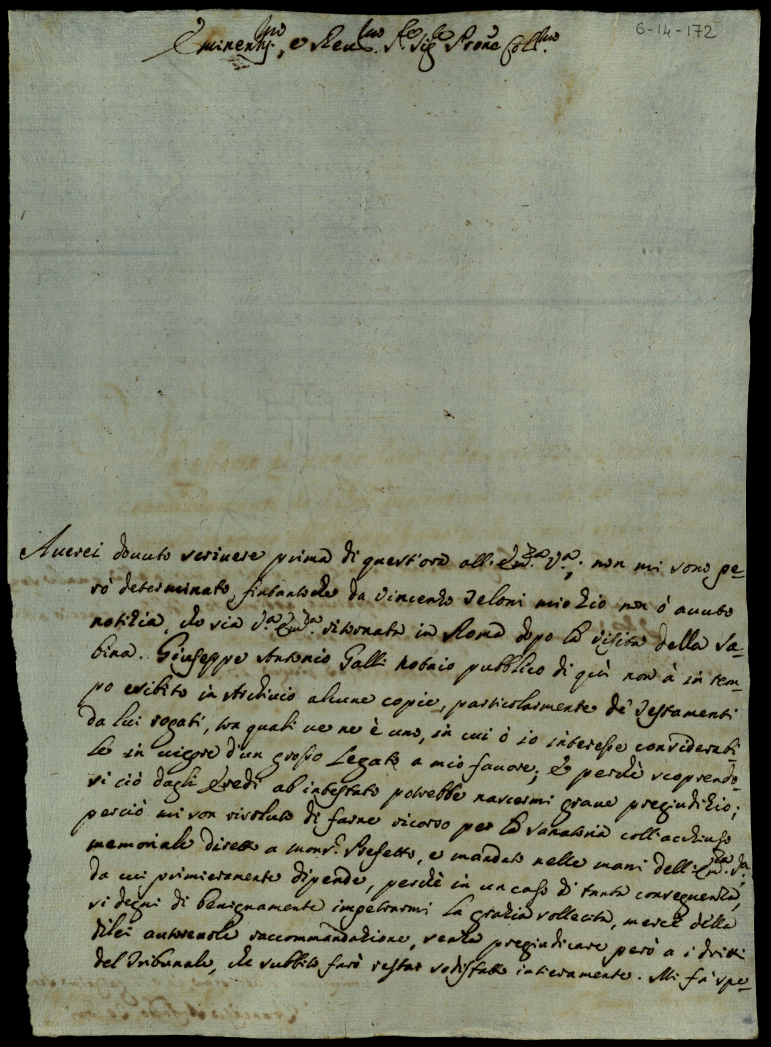 6-14-172
Eminentis.mo, e Reu.mo S.re Sig.re Prone Coll.mo
Averei douuto scriuere prima di quest'ora all'Em.za V.a; non mi sono pe-
rò determinato, fintantoche da Vincenzo Teloni mio zio non ò auuto
notizia, che sia V.a Em.za ritornata in Roma dopo la visita della Sa-
bina. Giuseppe Antonio Galli notaio pubblico di quì non à in tem-
po esibito in Archiuio alcune copie, particolarmente de' Testamenti
da lui rogati, tra quali ve ne è uno, in cui ò io interesse considerabi-
le in vigore d'un grosso Legato a mio fauore; e perchè scoprendo-
si ciò dagli Eredi ab intestato potrebbe nascermi graue pregiudizio;
perciò mi son risoluto di farne ricorso per la sanatoria coll'acchiuso
memoriale diretto a mons.r Prefetto, e mandato nelle mani dell'Em.za V.a,
da cui primieramente dipende, perchè in un caso di tanta conseguenza,
si degni di benignamente impetrarmi la grazia sollecita, mercè della
dilei autoreuole raccommandazione, senza pregiudicare però a i dritti
del Tribunale, che subbito farò restar sodisfatto intieramente. Mi fà spe-